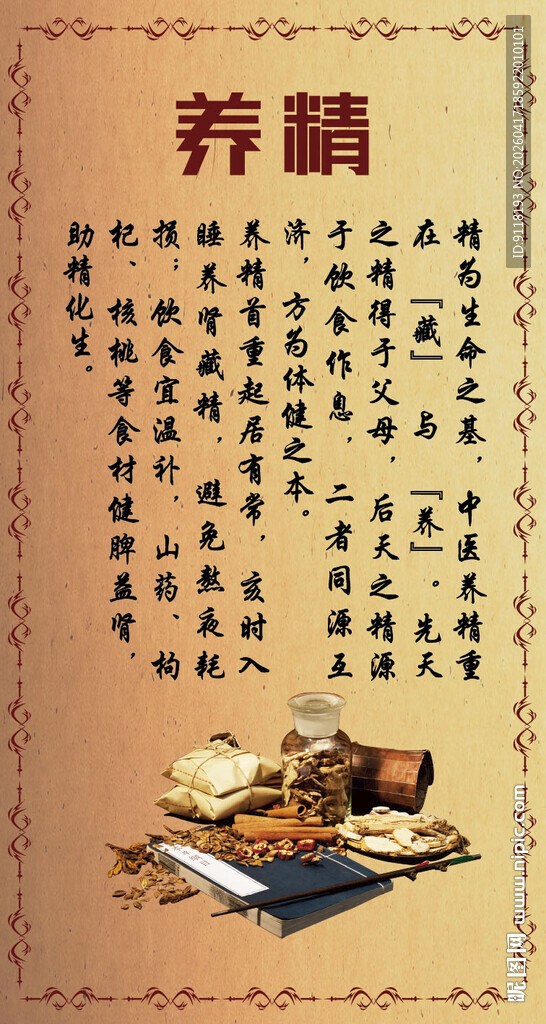 养精
精为生命之基，中医养精重
在『藏』与『养』。先天
之精得于父母，后天之精源
于饮食作息，二者同源互
济，方为体健之本。
养精首重起居有常，亥时入
睡养肾藏精，避免熬夜耗
损；饮食宜温补，山药、枸
杞、核桃等食材健脾益肾，
助精化生。
ID:9118193 NO:20260417185922010101
昵图网 www.nipic.com